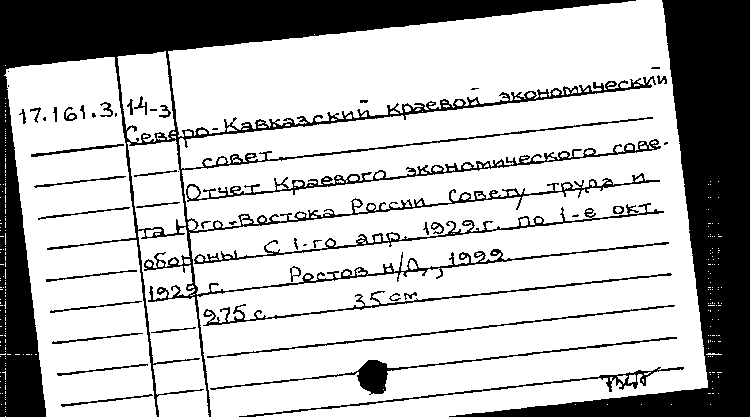 17.161.3. 14-3
Северо-Кавказский краевой экономический
совет.
Отчет Краевого экономического сове-
та Юго-Востока России Совету труда и
обороны. С 1-го апр. 1922.г. по 1-е окт.
1922 г. Ростов н/Д., 1922.
275 с. 35 см